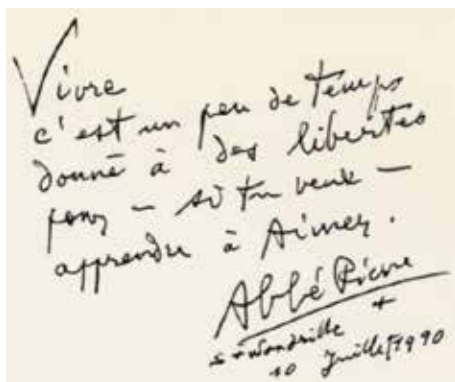 Vivre
c'est un peu de temps
donné à des libertés
pour – si tu veux –
apprendre à Aimer.
Abbé Pierre
St Wandrille +
10 Juillet 1990